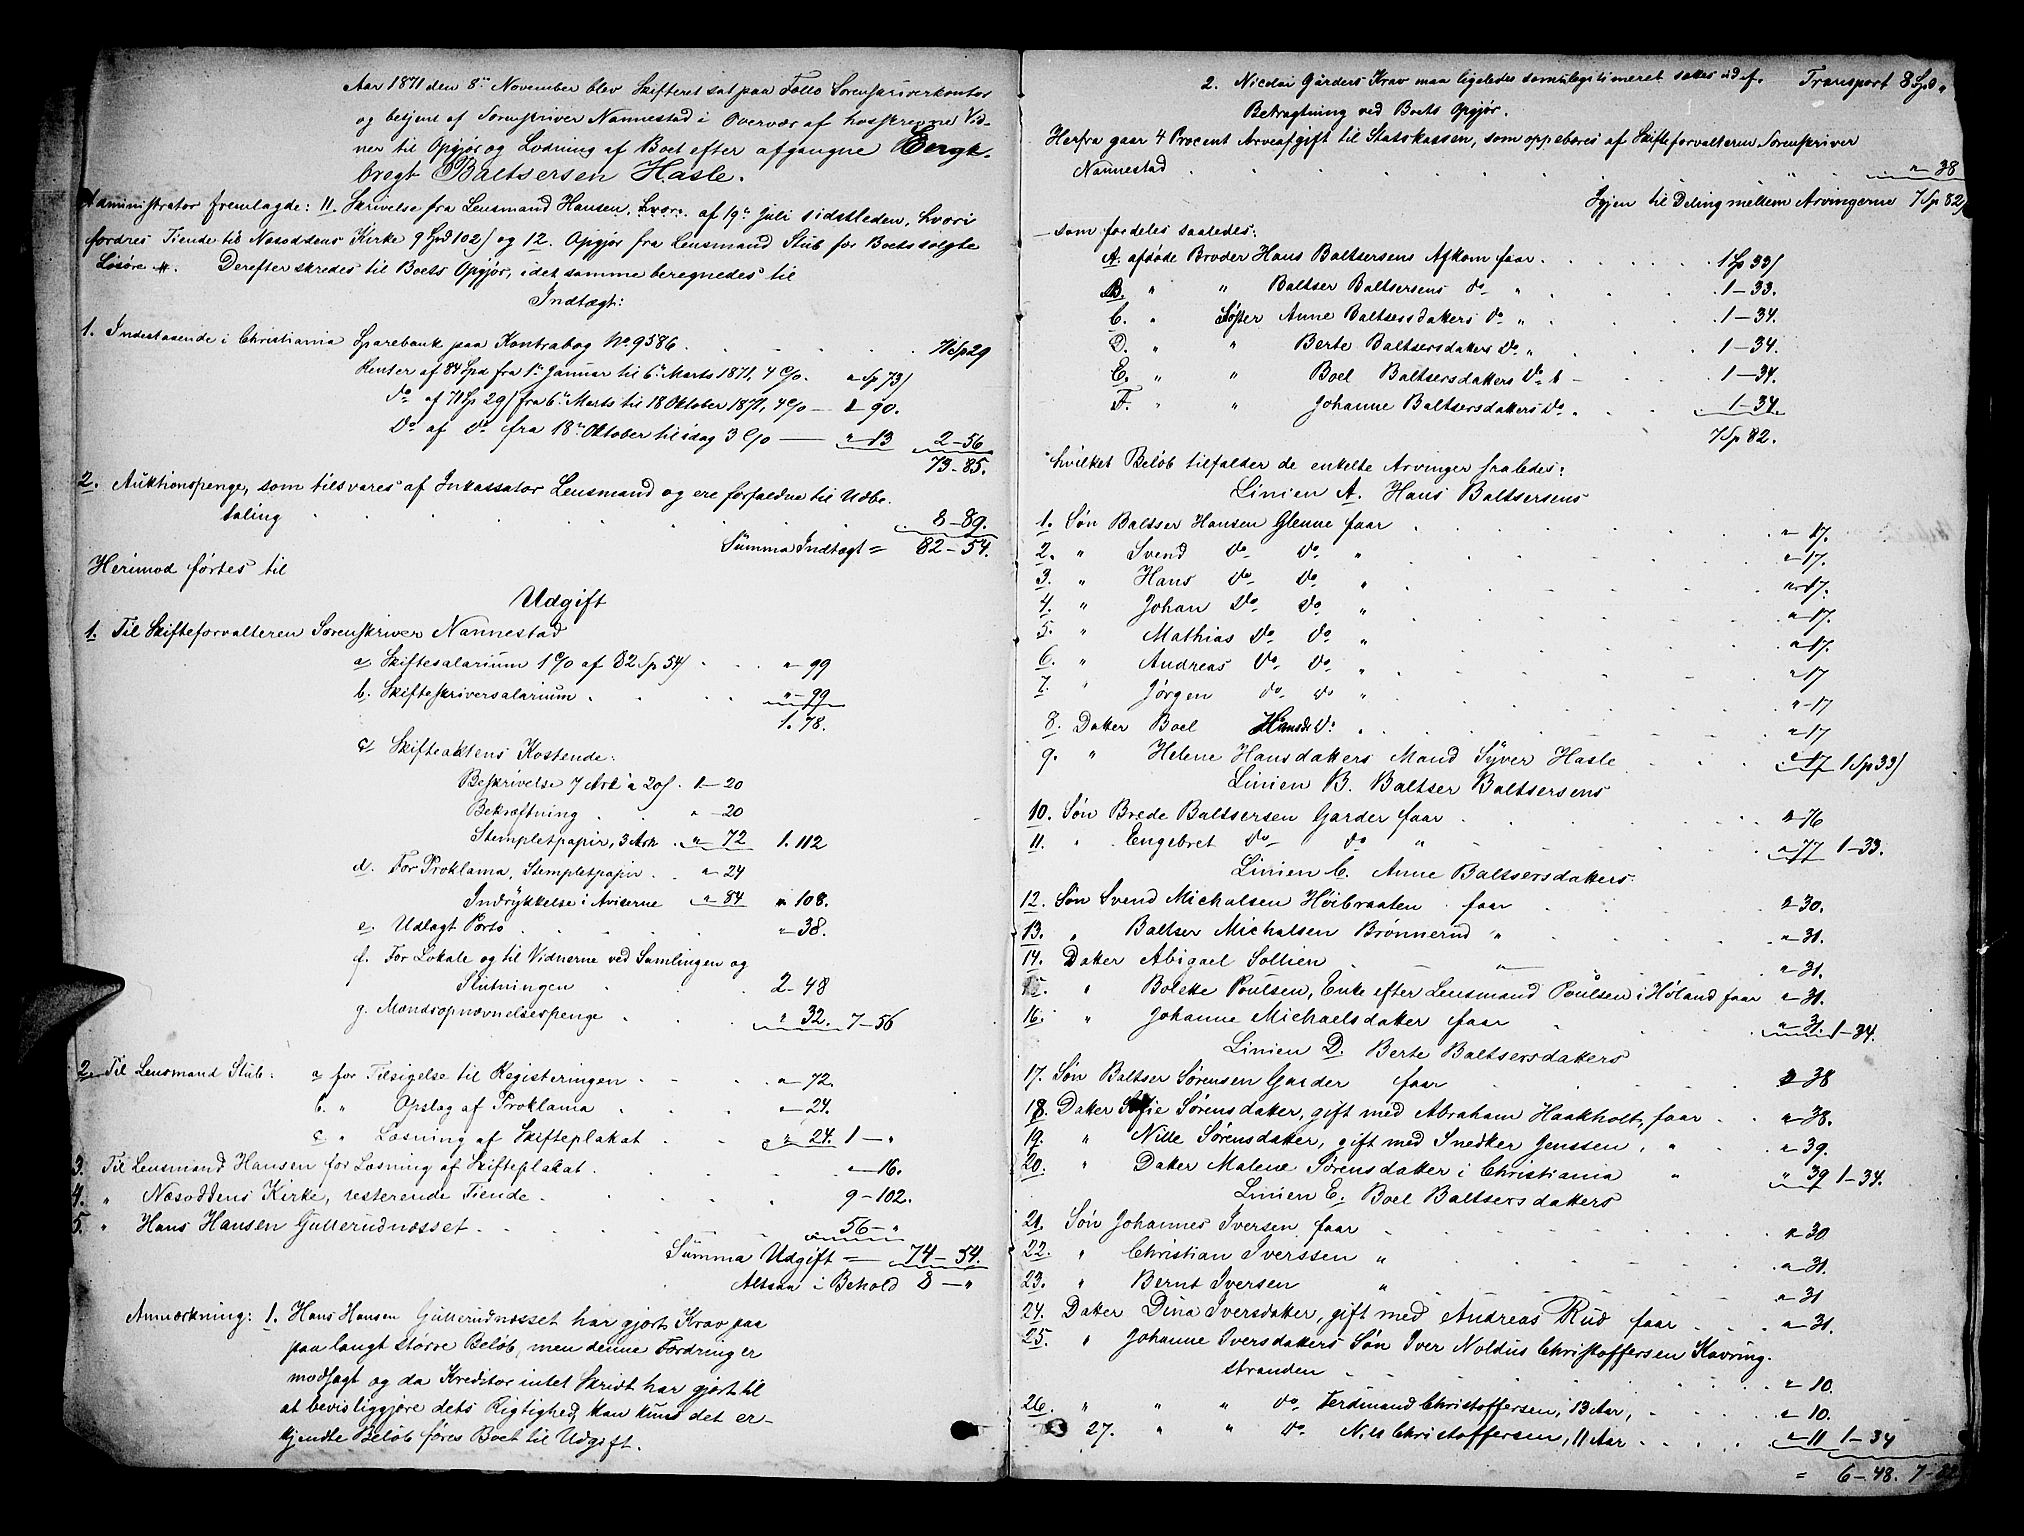 Aar 1871 den 8de November blev Skifteret sat paa Follo Sorenskriverkontor
og betjent af Sorenskriver Nannestad i Overvær af hosskrevne Vid-
ner til Opgjør og Lodning af Boet efter afgangne Enge-
bregt Baltsersen Hasle.
Administrator fremlagde: 11. Skrivelse fra Lensmand Hansen, af 19de Juli sidstleden, hvori
fordres Tiende til Nesoddens Kirke 9 Spd 102 s og 12. Opgjør fra Lensmand Stub for Boets solgte
Løsøre. Derefter skredes til Boets Opgjør, idet samme beregnedes til
Indtægt:
1. Indestaaende i Christiania Sparebank paa Kontrabog No 9586 71 Sp 29
Renter af 84 Spd fra 1ste Januar til 6te Marts 1871, 4 % " Sp 73 s
do af 71 Sp 29 s fra 6te Marts til 18 Oktober 1871, 4 % — 1 - 90.
do af do fra 18de Oktober til idag 3 % — " - 13 2 - 56
73 - 85.
2. Auktionspenge, som tilsvares af Inkassator Lensmand og ere forfaldne til Udbe-
taling 8 - 89.
Summa Indtægt = 82 - 54.
Herimod førtes til
Udgift
1. Til Skifteforvalteren Sorenskriver Nannestad
a. Skiftesalarium 1 % af 82 Sp 54 s " - 99
b. Skifteskriversalarium " - 99
1. 78.
c. Skifteaktens Kostende:
Beskrivelse 7 Ark a 20 s. 1 - 20
Bekræftning " - 20
Stempletpapir, 3 Ark " - 72 1. 112
d. For Proklama, Stempletpapir " - 24
Indrykkelse i Aviserne " - 84 " 108.
e. Udlagt Porto " - 38.
f. For Lokale og til Vidnerne ved Samlingen og
Slutningen 2 - 48
g. Mandsopnævnelsespenge " 32. 7 - 56
2. Til Lensmand Stub: a for Tilsigelse til Registeringen " - 72.
b. " Opslag af Proklama " - 24.
c " Læsning af Skifteplakat " 24. 1 - "
3. Til Lensmand Hansen for Læsning af Skifteplakat. " - 16.
4. " Næsoddens Kirke, resterende Tiende 9 - 102.
5. " Hans Hansen Gullerudnæsset 56 - "
Summa Udgift = 74 - 54.
Altsaa i Behold 8 - "
Anmærkning: 1. Hans Hansen Gullerudnæsset har gjort Krav paa
paa langt større Beløb, men denne Fordring er
modsagt og da Kreditor intet Skridt har gjort til
at bevisliggjøre dets Rigtighed, kan kuns det er-
kjendte Beløb føres Boet til Udgift.
2. Nicolai Garders Krav maa ligeledes som ulegitimeret sættes ud af Transport 8 Spd "
Betragtning ved Boets Opgjør.
Herfra gaar 4 Procent Arveafgift til Statskassen, som oppebæres af Skifteforvalteren Sorenskriver
Nannestad " - 38
Igjen til Deling mellem Arvingerne 7 Sp 82 s
som fordeles saaledes:
A. afdøde Broder Hans Baltsersens Afkom faar 1 Sp 33 s
B. " " Baltser Baltsersens do " 1 - 33.
C. " Søster Anne Baltsersdatters do " 1 - 34.
D. " " Berte Baltsersdatters do " 1 - 34.
E. " " Boel Baltsersdatters do " 1 - 34.
F. " " Johanne Baltsersdatters do " 1 - 34.
7 Sp 82.
hvilket Beløb tilfalder de enkelte Arvinger saaledes:
Linien A. Hans Baltsersens
1. Søn Baltser Hansen Glenne faar " - 17.
2. " Svend do do " " - 17.
3. " Hans do do " " - 17.
4. " Johan do do " " - 17.
5. " Mathias do do " " - 17.
6. " Andreas do do " " - 17
7. " Jørgen do do " " - 17
8. Datter Boel Hansd. do " " - 17
9. " Helene Hansdatters Mand Syver Hasle " - 17 1 Sp 33 s
Linien B. Baltser Baltsersens
10. Søn Brede Baltsersen Garder faar " - 76
11. " Engebret do do " " - 77 1 - 33.
Linien C. Anne Baltsersdatters
12. Søn Svend Michalsen Høibraaten faar " - 30.
13. " Baltser Michalsen Brønnerud " " - 31.
14. Datter Abigael Sollien " " - 31.
15. " Bolette Poulsen, Enke efter Lensmand Poulsen i Høland faar " - 31.
16. " Johanne Michaelsdatter faar " - 31. 1 - 34.
Linien D. Berte Baltsersdatters
17. Søn Baltser Sørensen Garder faar " - 38
18. Datter Sofie Sørensdatter, gift med Abraham Haakholt, faar " - 38.
19. " Nille Sørensdatter, gift med Snedker Jenssen, " " - 39.
20. " Datter Malene Sørensdatter i Christiania " " 39 1 - 34.
Linien E. Boel Baltsersdatters
21. Søn Johannes Iversen faar " - 30
22. " Christian Iverssen " " - 31.
23. " Bernt Iversen " " - 31
24. Datter Dina Iversdatter, gift med Andreas Rud faar " - 31.
25. " Johanne Iversdatters Søn Iver Noldus Christoffersen Kavring-
stranden " - 10.
26. " " " do Ferdinand Christoffersen, 13 Aar, " - 10.
27. " " do Nils Christoffersen, 11 Aar " - 11 1 - 34
= 6 - 48. 7 - 82